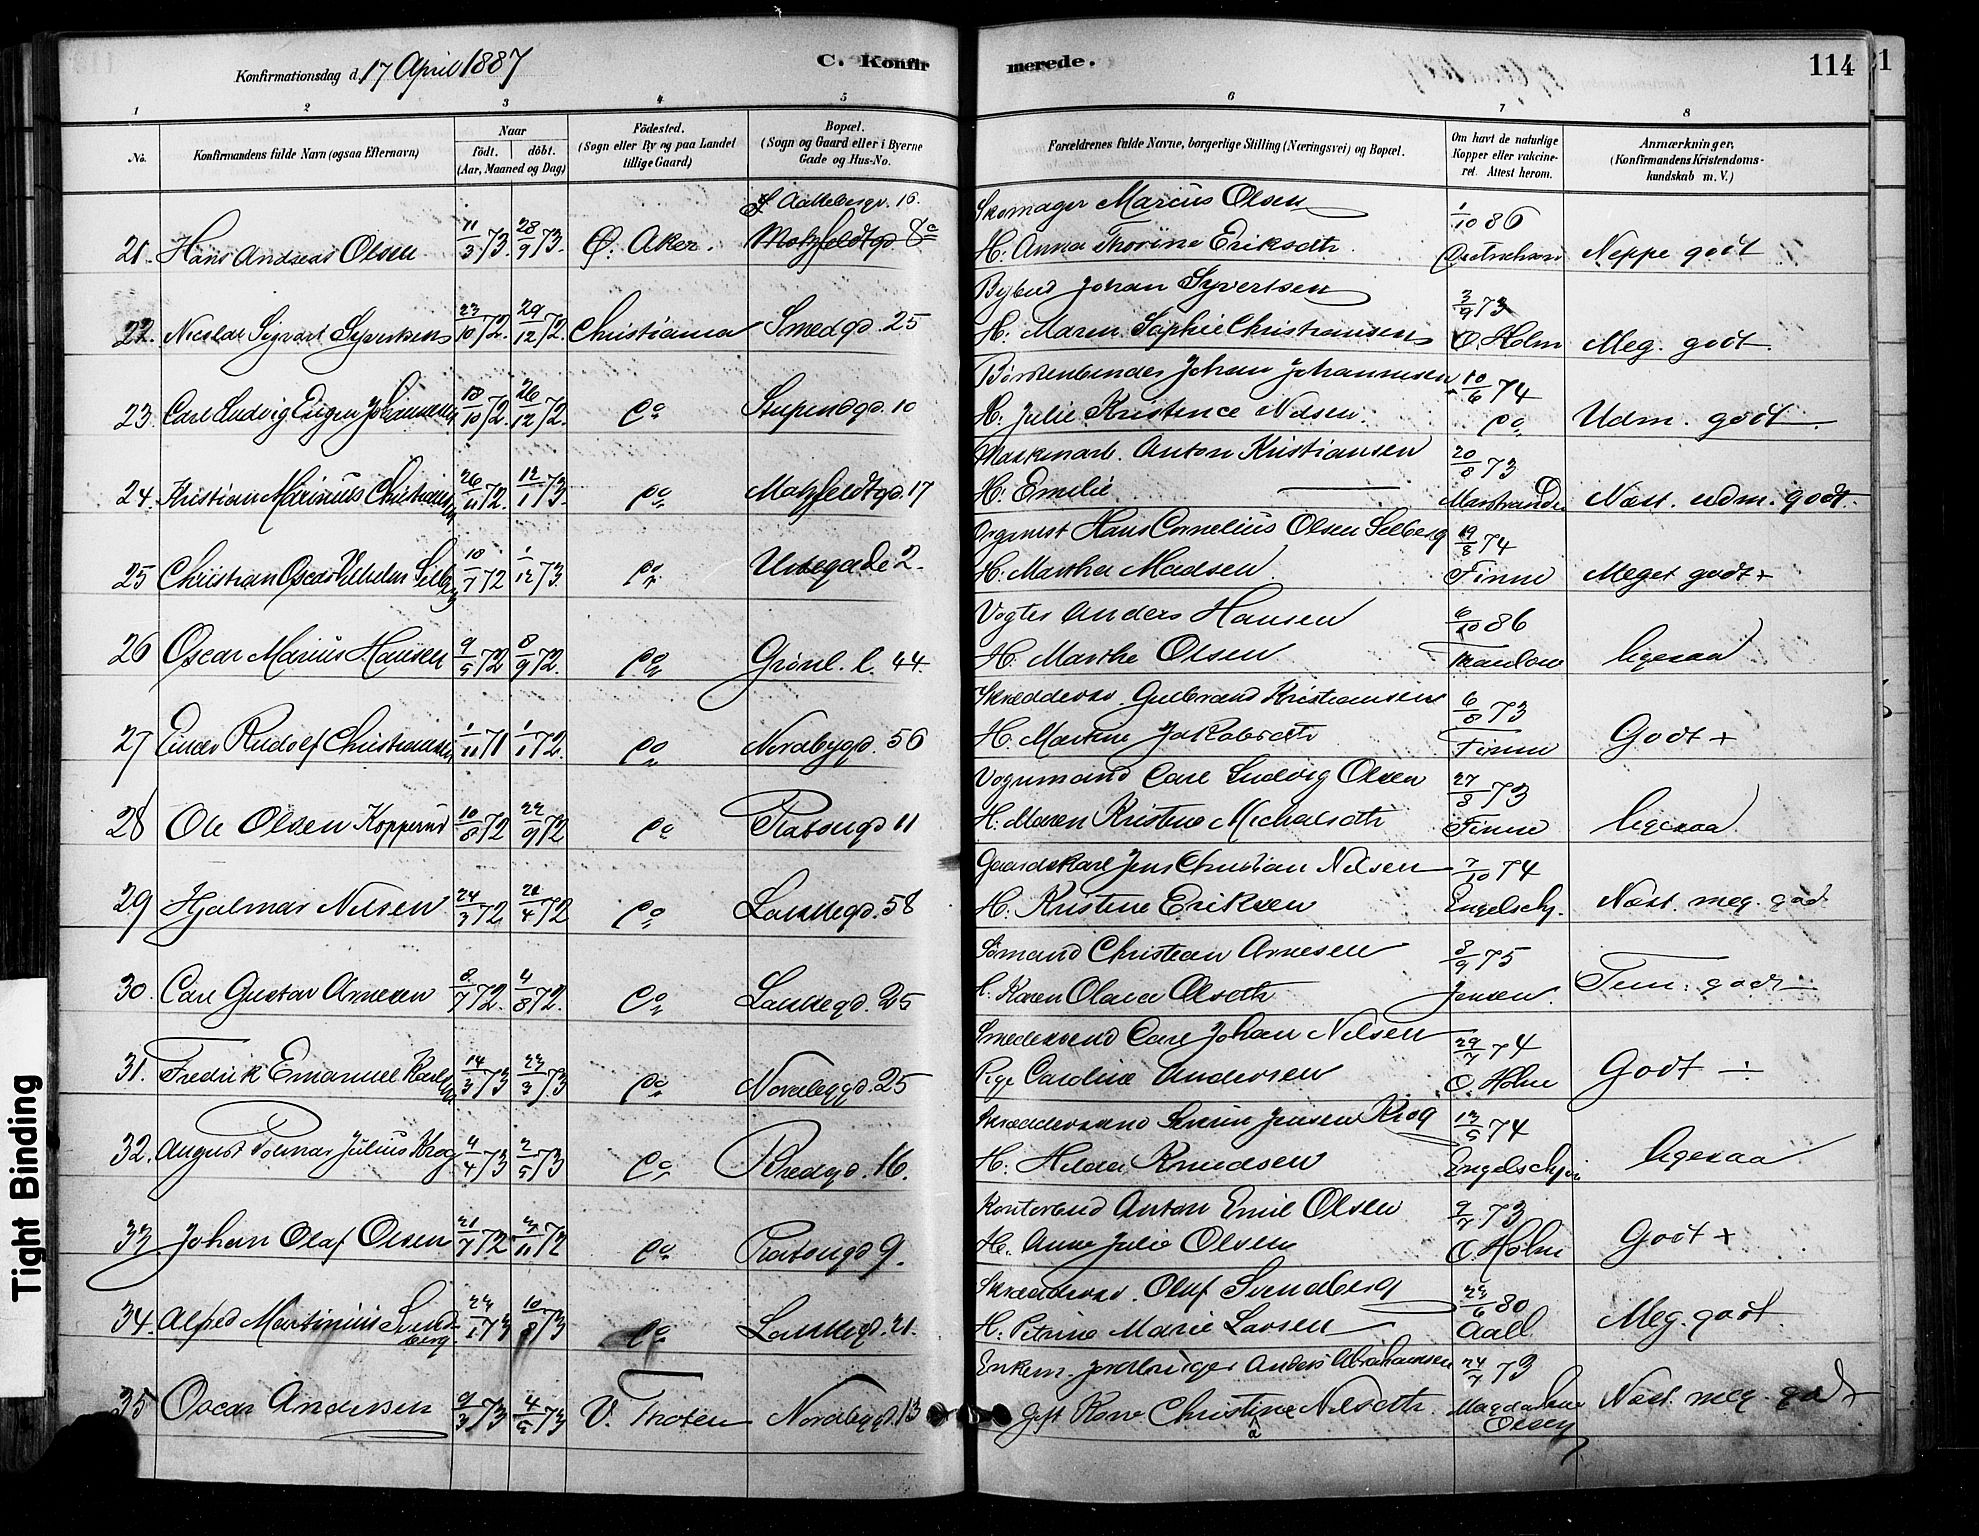 Konfirmationsdag d. 17 April 1887
C. Konfirmerede.
114
1 2 3 4 5 6 7 8
No.
Konfirmandens fulde Navn (ogsaa Efternavn)
Naar født. døbt. (Aar, Maaned og Dag)
Fødested. (Sogn eller By og paa Landet tillige Gaard)
Bopæl. (Sogn og Gaard eller i Byerne Gade og Hus-No.
Forældrenes fulde Navne, borgerlige Stilling (Næringsvei) og Bopæl.
Om havt de naturlige Kopper eller vakcineret. Attest herom.
Anmærkninger, (Konfirmandens Kristendomskundskab m. V.)
21. Hans Andreas Olsen 11/3 73. 28/9 73. Ø. Aker. Motzfeldtgd. 8 Skomager Marcus Olsen 1/10 86
H. Anna Thorine Eriksdtr. Neppe godt
22. Nicolai Sigvart Syvertsen 23/10 72. 29/12 72. Christiania Smedgd. 25 Bybud Johan Syvertsen 3/9 73
H. Maren Sophie Christiansen O. Holm Meg. godt.
23. Carl Ludvig Eugen Johannesen 18/10 72. 26/12 72. do Stupendgd. 10 Børstenbinder Johan Johannesen 10/6 74
H. Julie Kristence Nilsen. do Udm. godt
24. Kristian Marinius Christiansen 26/11 72. 12/1 73. do Motzfeldtgd. 17 Maskinarb. Anton Kristiansen 20/8 73
H. Emilie Marstrander Næst. udm. godt.
25 Christian Oscar Vilhelm Selberg 10/7 72 1/12 73. do Urtegade 2. Organist Hans Cornelius Olsen Selberg 19/8 74
H. Martha Madsen Finne Meget godt +
26 Oscar Marius Hansen 9/5 72 8/9 72. do Grønl. l. 44 Vogter Anders Hansen 6/10 86
H. Marthe Olsen Thaulow ligesaa
27 Einar Rudolf Christiansen 1/11 71 1/1 72. do Nordbygd. 56 Skræddersv. Gulbrand Kristiansen 6/8 73
H. Martine Jakobsdtr. Finne Godt +
28 Ole Olsen Kopperud 10/8 72 22/9 72 do Platougd 11 Vognmand Carl Ludvig Olsen 27/8 73
H. Maren Kristine Michalsdtr Finne ligesaa.
29 Hjalmar Nilsen 24/3 72 21/4 72 do Lakkegd. 58 Gaardskarl Jens Christian Nilsen 7/10 74
H. Kristine Eriksen Engelschj. Næst. meg. godt
30. Carl Gustav Arnesen 8/7 72. 4/8 72. do Lakkegd. 25 Sømand Christian Arnesen 8/9 75
H. Karen Olava Olsdtr Jensen. Tem. godt
31. Fredrik Emanuel Karlsen 14/3 73 23/3 73 do Nordbygd. 25 Smedesvend Carl Johan Nilsen 29/7 74
Pige Caroline Andersen O. Holm Godt ÷
32. August Volmar Julius Krog 4/4 73 2/5 73 do Bredgd. 16. Skræddersvend Severin Jensen Krog 13/5 74
H. Hilda Knudsen Engelschjøn ligesaa
33 Johan Olaf Olsen 21/7 72 3/11 72 do Platougd 9. Kontorbud Anton Emil Olsen 9/7 73
H. Anne Julie Olsen O. Holm Godt +
34. Alfred Martinius Sundberg 23/1 73 10/8 73 do Lakkegd. 21. Skræddersv. Oluf Sundberg 23/6 80
H. Petrine Marie Larsen Aall Meg. godt.
35 Oscar Andersen 9/3 73 4/5 73 V. Thoten Nordbygd. 13 Enkem. Jordbruger Anders Abrahamsen 24/7 73
Gift Karen Christine Nilsdtr. Magdalena Olsen Næst. meg. godt
Tight Binding